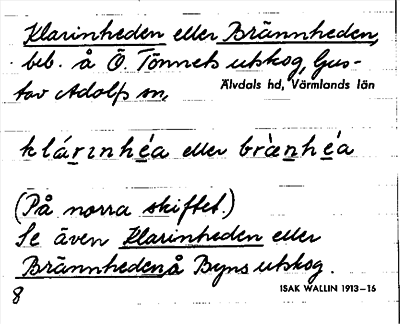 Klarinheden eller Brännheden,
beb. å Ö. Tönnets utskog, Gus-
tav Adolfs sn,
Älvdals hd, Värmlands län
klárınhéa eller brὰnhéa
(På norra skiftet.)
Se även Klarinheden eller
Brännheden, å Byns utskog.
8
ISAK WALLIN 1913–16